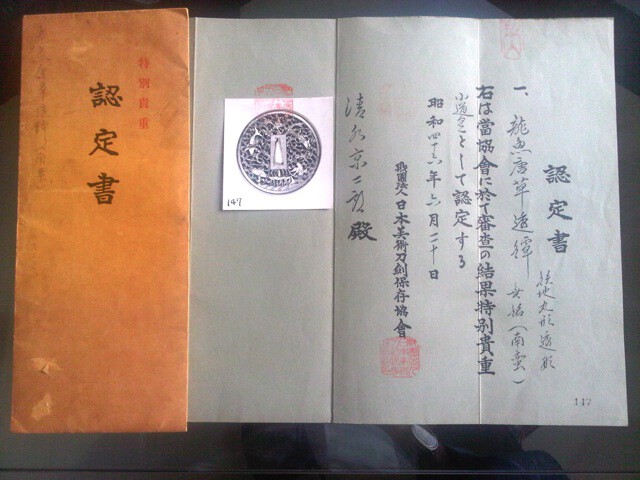 特別貴重
認定書
認定書
一、龍魚唐草透鐔 無銘(南蛮)
鉄地丸形透彫
右は當協會に於て審査の結果特別貴重
小道具として認定する
昭和四十六年六月二十日
財團法人日本美術刀劍保存協會
殿
147
147